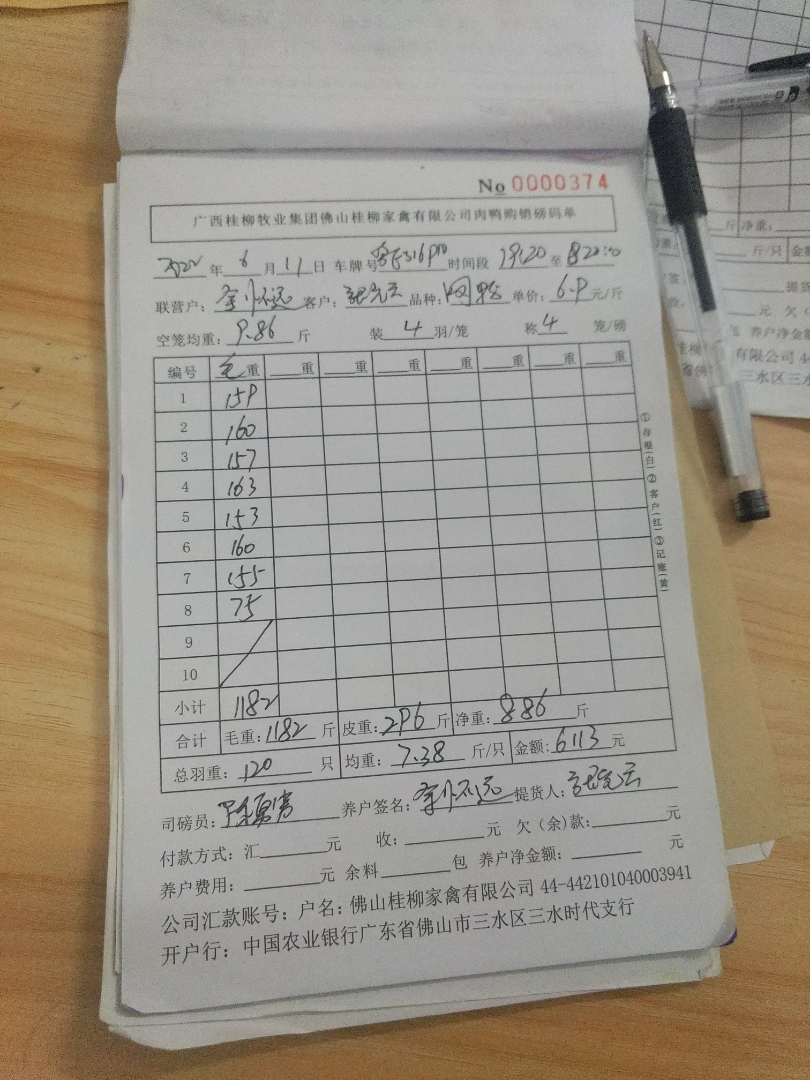 No 0000374
广西桂柳牧业集团佛山桂柳家禽有限公司肉鸭购销磅码单
2022年6月11日 车牌号 时间段 19:20至8:20
联营户： 客户： 品种： 单价：6.9元/斤
空笼均重：9.86斤 装4羽/笼 称4笼/磅
编号 毛重 重 重 重 重 重 重 重
1 159
2 160
3 157
4 163
5 153
6 160
7 155
8 75
9
10
小计 1182
合计 毛重：1182斤 皮重：296斤 净重：886斤
总羽重：120只 均重：7.38斤/只 金额：6113元
司磅员： 养户签名： 提货人：
付款方式：汇 元 收： 元 欠（余）款： 元
养户费用： 元 余料 包 养户净金额： 元
公司汇款账号：户名：佛山桂柳家禽有限公司 44-442101040003941
开户行：中国农业银行广东省佛山市三水区三水时代支行
①存根(白)②客户(红)③记账(黄)
斤 净重：
斤/只 金额
提货
元 欠（
养户净金额
有限公司 44-
三水区三水